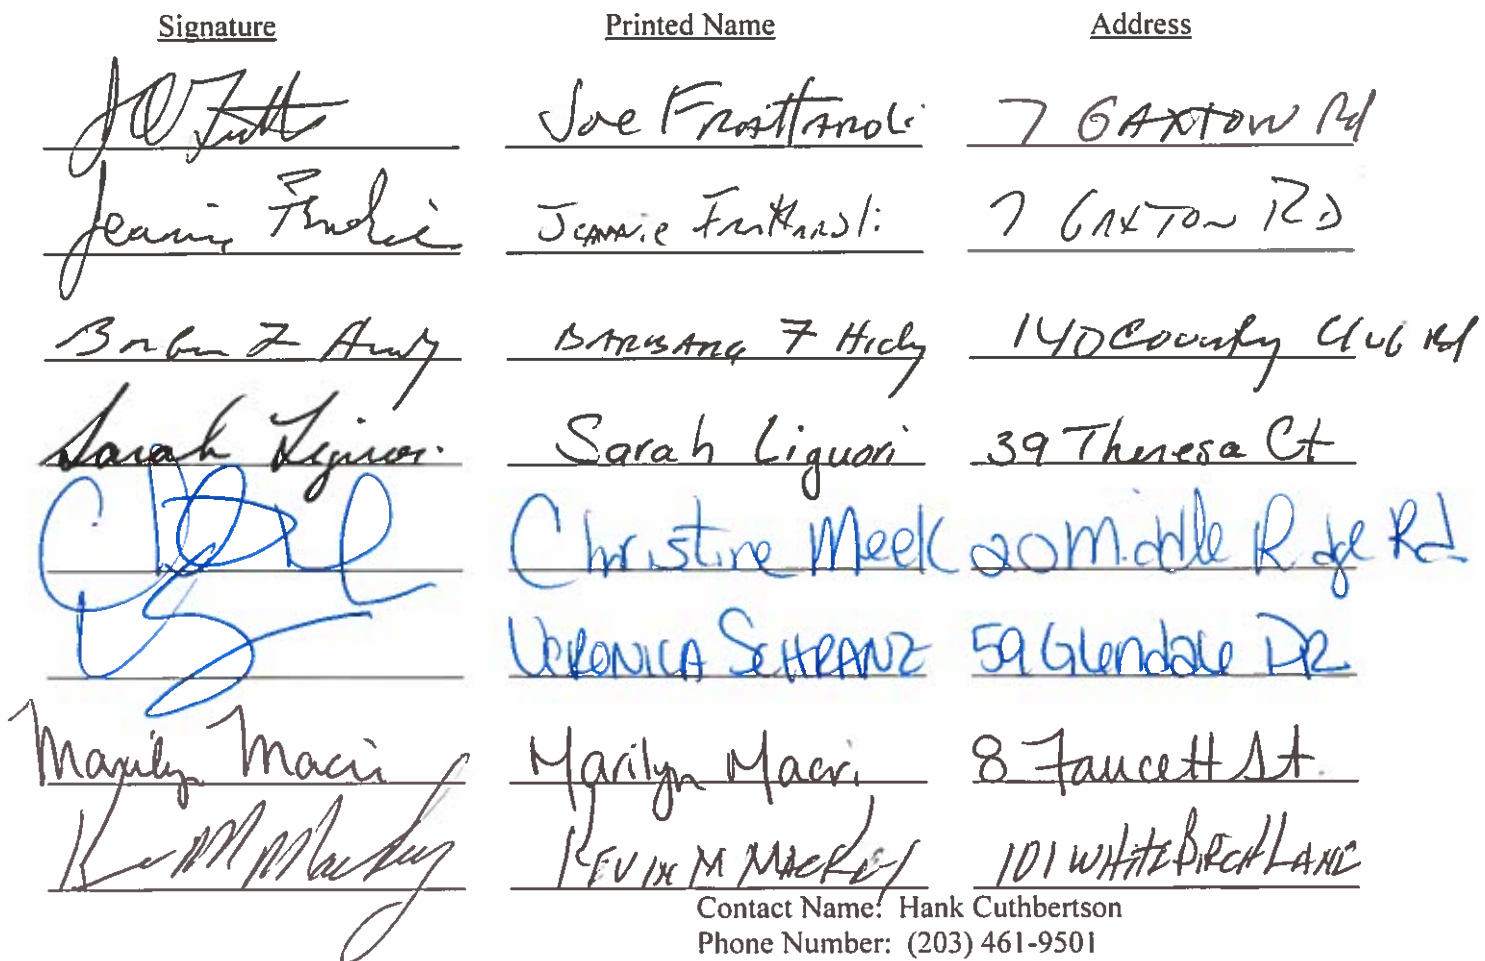 Signature Printed Name Address
Joe Frattaroli 7 GAXTON Rd
Jeannie Frattaroli 7 GAXTON RD
BARBARA F 140 Country Club Rd
Sarah Liguori Sarah Liguori 39 Theresa Ct
Christine Meek 20 Middle Ridge Rd
VERONICA SCHRANZ 59 Glendale DR
Marilyn Macri Marilyn Macri 8 Faucett St.
KEVIN M MACKEY 101 WHITE BIRCH LANE
Contact Name: Hank Cuthbertson
Phone Number: (203) 461-9501